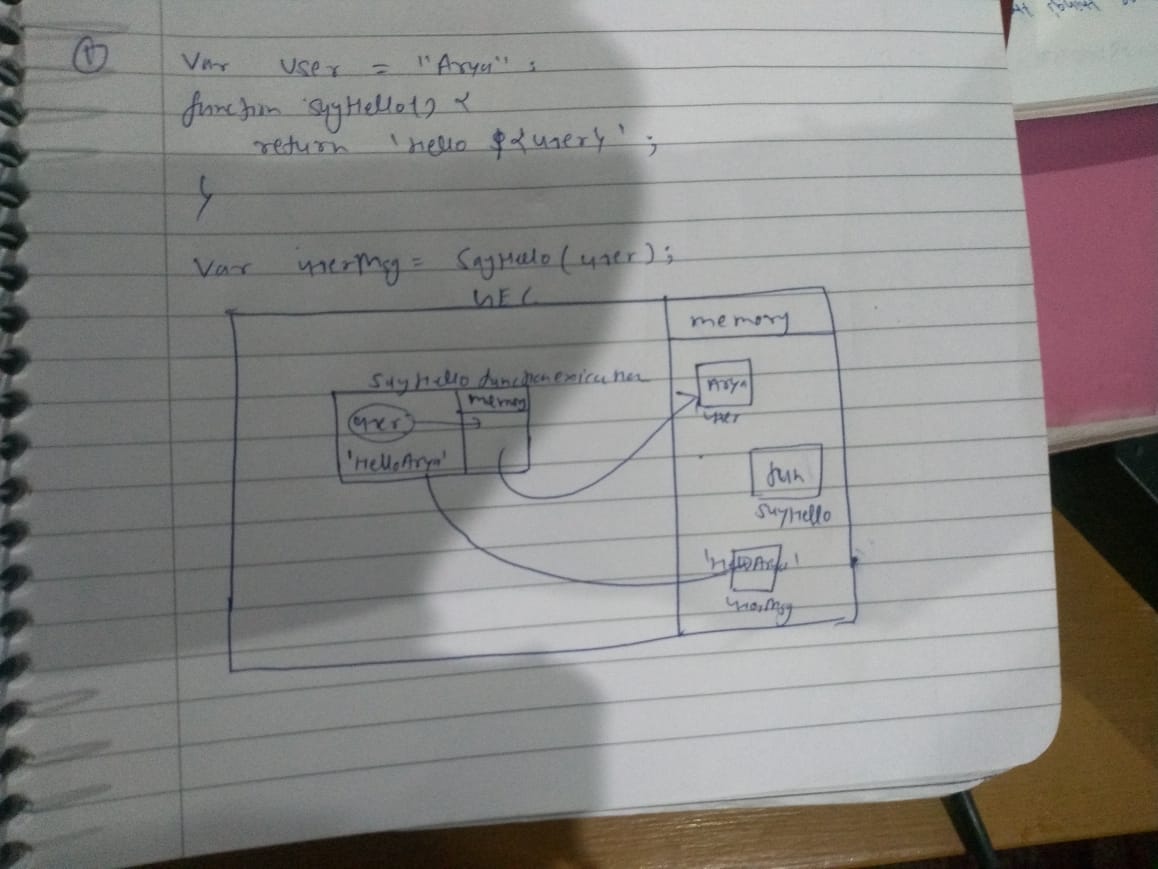 ①
var user = "Arya";
function sayHello() {
return 'Hello ${user}';
}
Var userMsg = SayHello(user);
GEC
memory
SayHello function
memory
user
'Hello Arya'
Arya
user
fun
SayHello
'Hello Arya'
userMsg